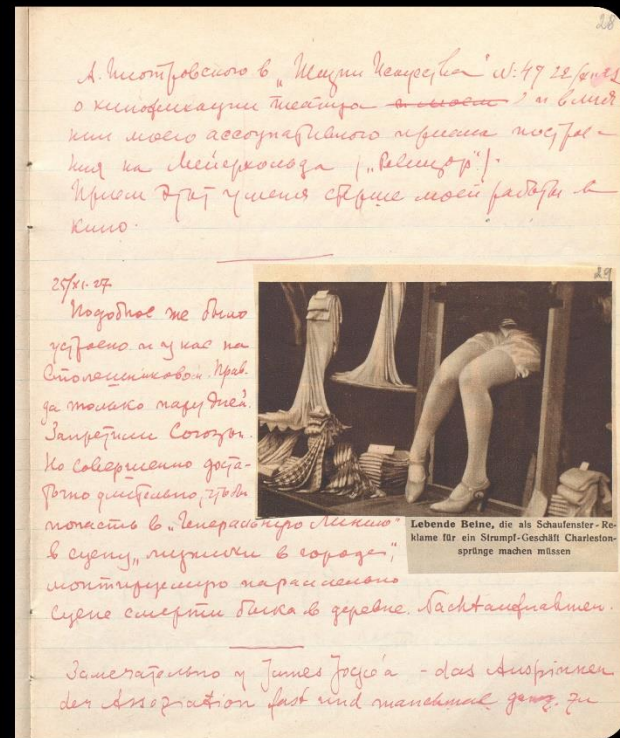 28
А. Пиотровского в „Жизни Искусства" №: 49 22/XI-27
о кинофикации театра и влия
нии моего ассоциативного приема построе-
ния на Мейерхольда („Ревизор").
Прием этот у меня сверше моей работы в
кино.
25/XI-27
Подобное же было
устроено и у нас на
Столешниковом. Прав-
да только пару дней.
Запретили Союзы.
Но совершенно доста-
точно длительно, чтобы
попасть в „Генеральную Линию"
в сцену „мужички в городе",
монтируемую параллельно
сцене смерти быка в деревне. Nachtaufnahmen.
29
Lebende Beine, die als Schaufenster-Re-
klame für ein Strumpf-Geschäft Charleston-
sprünge machen müssen
Замечательно у James Joyce'а - das Ausspinnen
der Assoziation fast und manchmal ganz zu